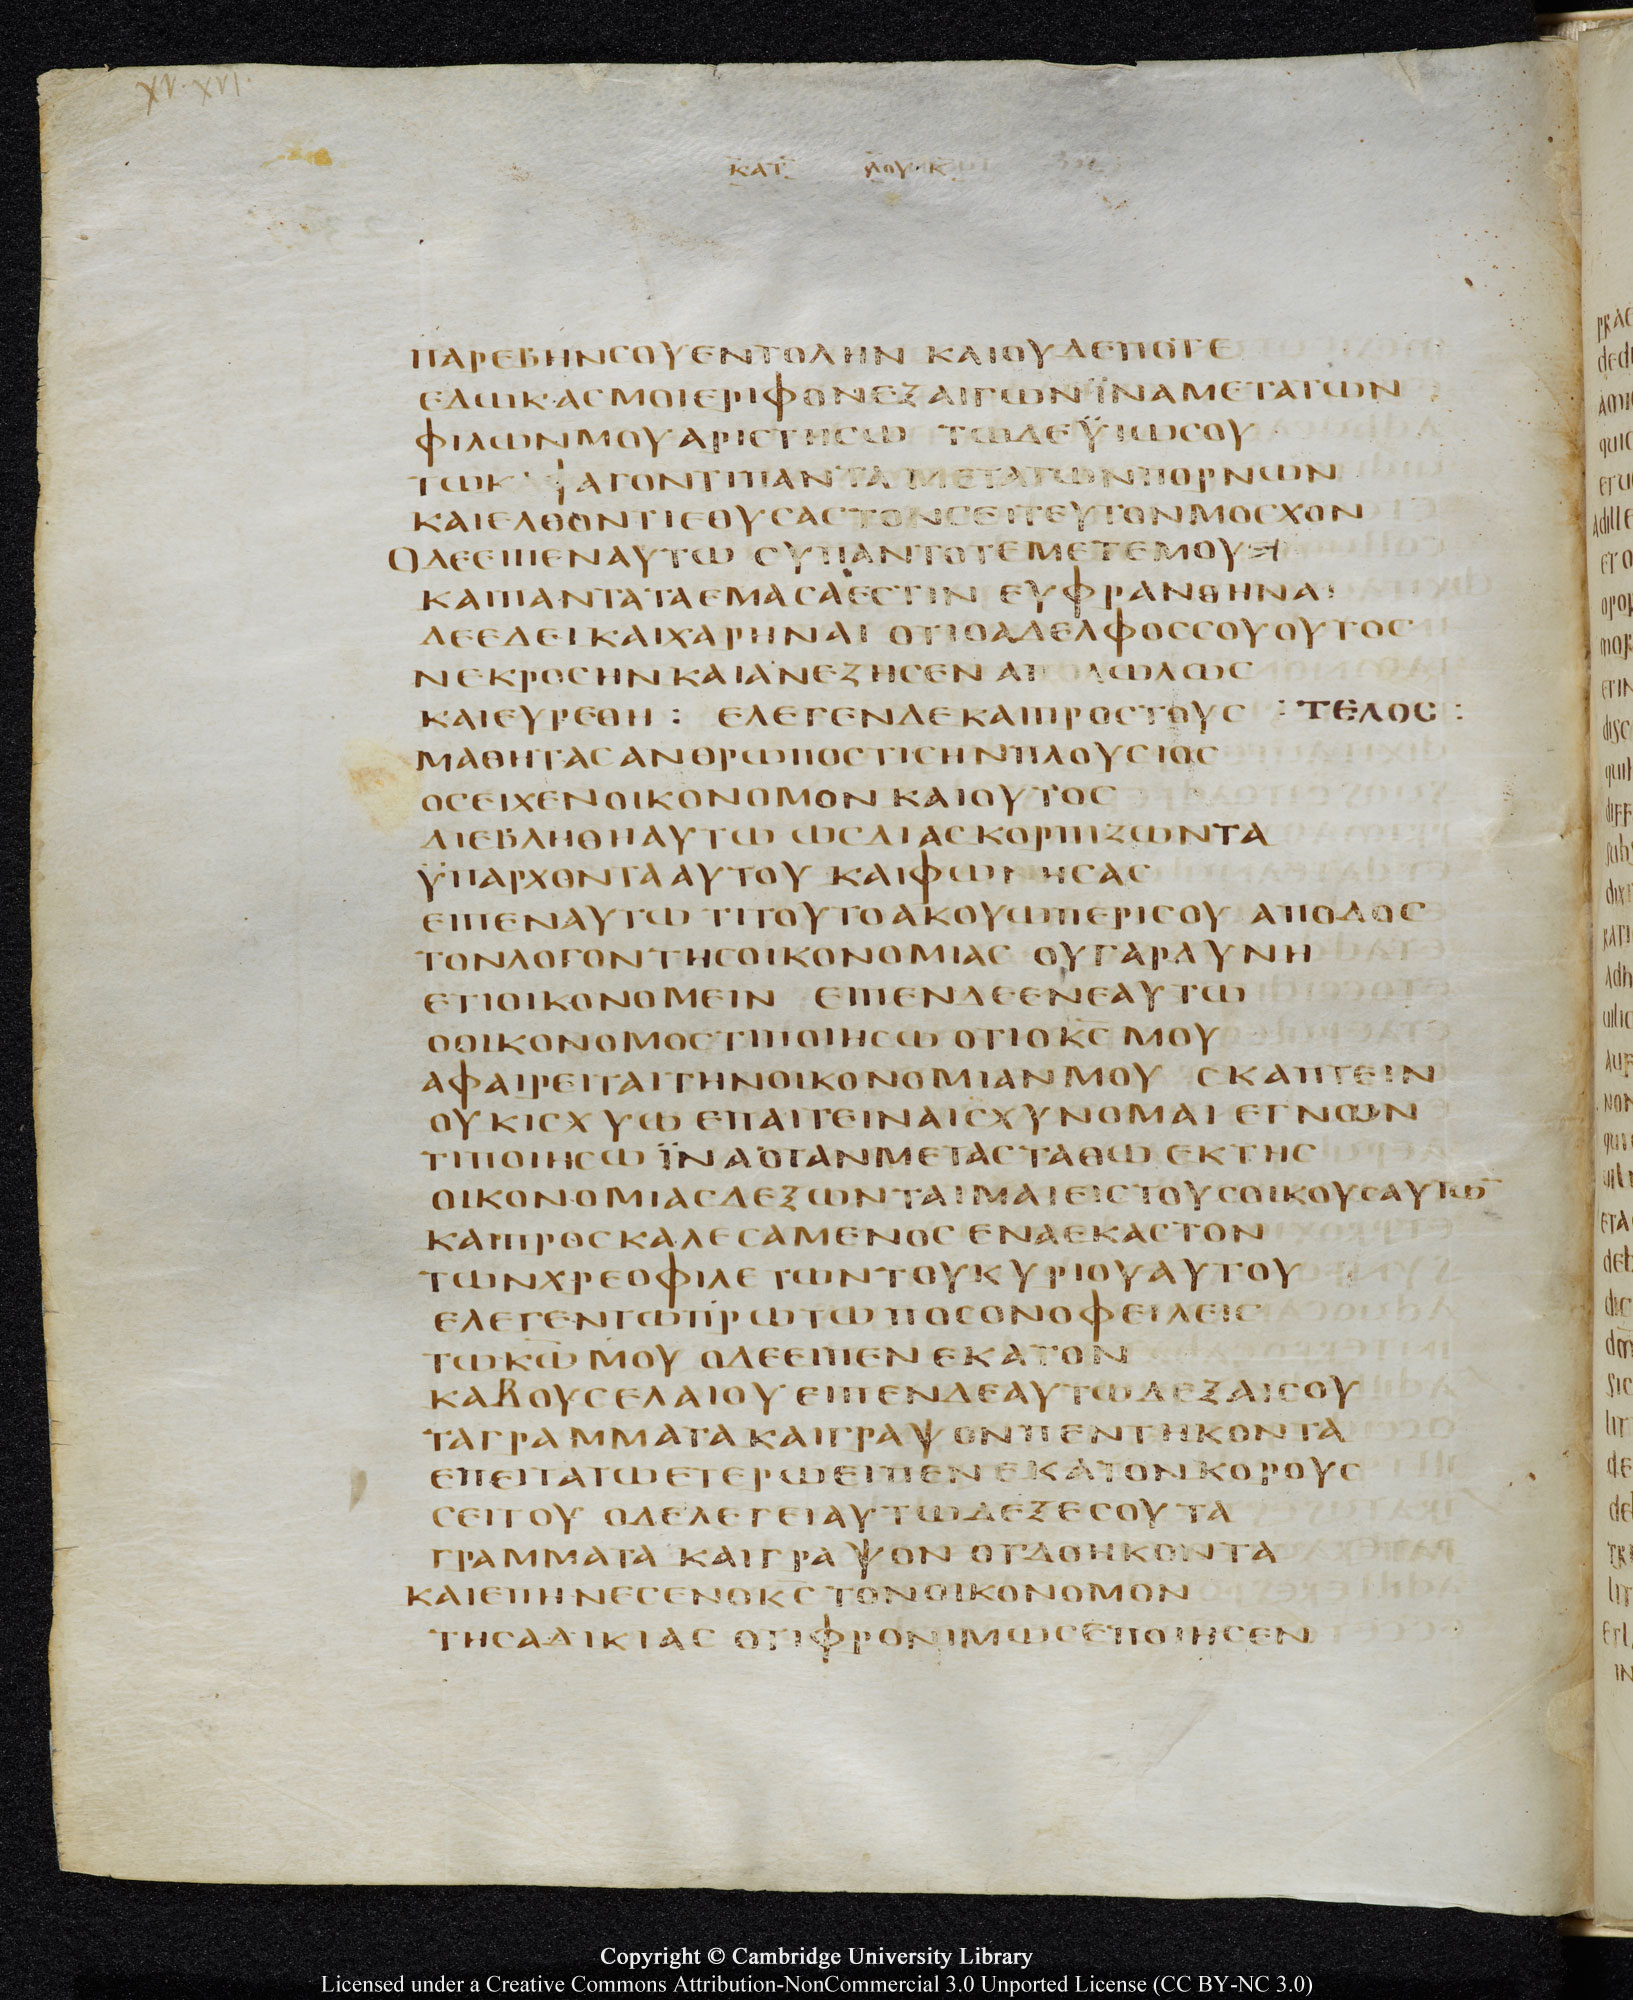 XV. XVI.
ΚΑΤ ΛΟΥΚ
ΠΑΡΕΒΗΝΣΟΥΕΝΤΟΛΗΝ ΚΑΙΟΥΔΕΠΟΤΕ
ΕΔΩΚΑΣΜΟΙΕΡΙΦΟΝΕΞΑΙΓΩΝΪΝΑΜΕΤΑΤΩΝ
ΦΙΛΩΝΜΟΥΑΡΙΣΤΗΣΩ ΤΩΔΕΫΙΩΣΟΥ
ΤΩΚ ΦΑΓΟΝΤΙΠΑΝΤΑΜΕΤΑΤΩΝΠΟΡΝΩΝ
ΚΑΙΕΛΘΟΝΤΙΕΘΥΣΑΣΤΟΝΣΕΙΤΕΥΤΟΝΜΟΣΧΟΝ
ΟΔΕΕΙΠΕΝΑΥΤΩ ΣΥΠΑΝΤΟΤΕΜΕΤΕΜΟΥΕΙ
ΚΑΙΠΑΝΤΑΤΑΕΜΑΣΑΕΣΤΙΝ ΕΥΦΡΑΝΘΗΝΑΙ
ΔΕΕΔΕΙΚΑΙΧΑΡΗΝΑΙ ΟΤΙΟΑΔΕΛΦΟΣΣΟΥΟΥΤΟΣ
ΝΕΚΡΟΣΗΝΚΑΙΑΝΕΖΗΣΕΝ ΑΠΟΛΩΛΩΣ
ΚΑΙΕΥΡΕΘΗ : ΕΛΕΓΕΝΔΕΚΑΙΠΡΟΣΤΟΥΣ : ΤΕΛΟΣ :
ΜΑΘΗΤΑΣΑΝΘΡΩΠΟΣΤΙΣΗΝΠΛΟΥΣΙΟΣ
ΟΣΕΙΧΕΝΟΙΚΟΝΟΜΟΝ ΚΑΙΟΥΤΟΣ
ΔΙΕΒΛΗΘΗΑΥΤΩ ΩΣΔΙΑΣΚΟΡΠΙΖΩΝΤΑ
ΫΠΑΡΧΟΝΤΑΑΥΤΟΥ ΚΑΙΦΩΝΗΣΑΣ
ΕΙΠΕΝΑΥΤΩ ΤΙΤΟΥΤΟΑΚΟΥΩΠΕΡΙΣΟΥ ΑΠΟΔΟΣ
ΤΟΝΛΟΓΟΝΤΗΣΟΙΚΟΝΟΜΙΑΣ ΟΥΓΑΡΔΥΝΗ
ΕΤΙΟΙΚΟΝΟΜΕΙΝ ΕΙΠΕΝΔΕΕΝΕΑΥΤΩ
ΟΟΙΚΟΝΟΜΟΣΤΙΠΟΙΗΣΩ ΟΤΙΟΚΣ ΜΟΥ
ΑΦΑΙΡΕΙΤΑΙΤΗΝΟΙΚΟΝΟΜΙΑΝΜΟΥ ΣΚΑΠΤΕΙΝ
ΟΥΚΙΣΧΥΩ ΕΠΑΙΤΕΙΝΑΙΣΧΥΝΟΜΑΙ ΕΓΝΩΝ
ΤΙΠΟΙΗΣΩ ΪΝΑΟΤΑΝΜΕΤΑΣΤΑΘΩ ΕΚΤΗΣ
ΟΙΚΟΝΟΜΙΑΣΔΕΞΩΝΤΑΙΜΑΙΕΙΣΤΟΥΣΟΙΚΟΥΣΑΥΤΩ̅
ΚΑΙΠΡΟΣΚΑΛΕΣΑΜΕΝΟΣ ΕΝΑΕΚΑΣΤΟΝ
ΤΩΝΧΡΕΟΦΙΛΕΤΩΝΤΟΥΚΥΡΙΟΥΑΥΤΟΥ
ΕΛΕΓΕΝΤΩΠΡΩΤΩ ΠΟΣΟΝΟΦΕΙΛΕΙΣ
ΤΩΚΩ ΜΟΥ ΟΔΕΕΙΠΕΝ ΕΚΑΤΟΝ
ΚΑΒΟΥΣΕΛΑΙΟΥ ΕΙΠΕΝΔΕΑΥΤΩΔΕΞΑΙΣΟΥ
ΤΑΓΡΑΜΜΑΤΑ ΚΑΙΓΡΑΨΟΝΠΕΝΤΗΚΟΝΤΑ
ΕΠΕΙΤΑΤΩΕΤΕΡΩΕΙΠΕΝ ΕΚΑΤΟΝΚΟΡΟΥΣ
ΣΕΙΤΟΥ ΟΔΕΛΕΓΕΙΑΥΤΩΔΕΞΕΣΟΥ ΤΑ
ΓΡΑΜΜΑΤΑ ΚΑΙΓΡΑΨΟΝ ΟΓΔΟΗΚΟΝΤΑ
ΚΑΙΕΠΗΝΕΣΕΝΟΚΣ ΤΟΝΟΙΚΟΝΟΜΟΝ
ΤΗΣΑΔΙΚΙΑΣ ΟΤΙΦΡΟΝΙΜΩΣΕΠΟΙΗΣΕΝ
Copyright © Cambridge University Library
Licensed under a Creative Commons Attribution-NonCommercial 3.0 Unported License (CC BY-NC 3.0)